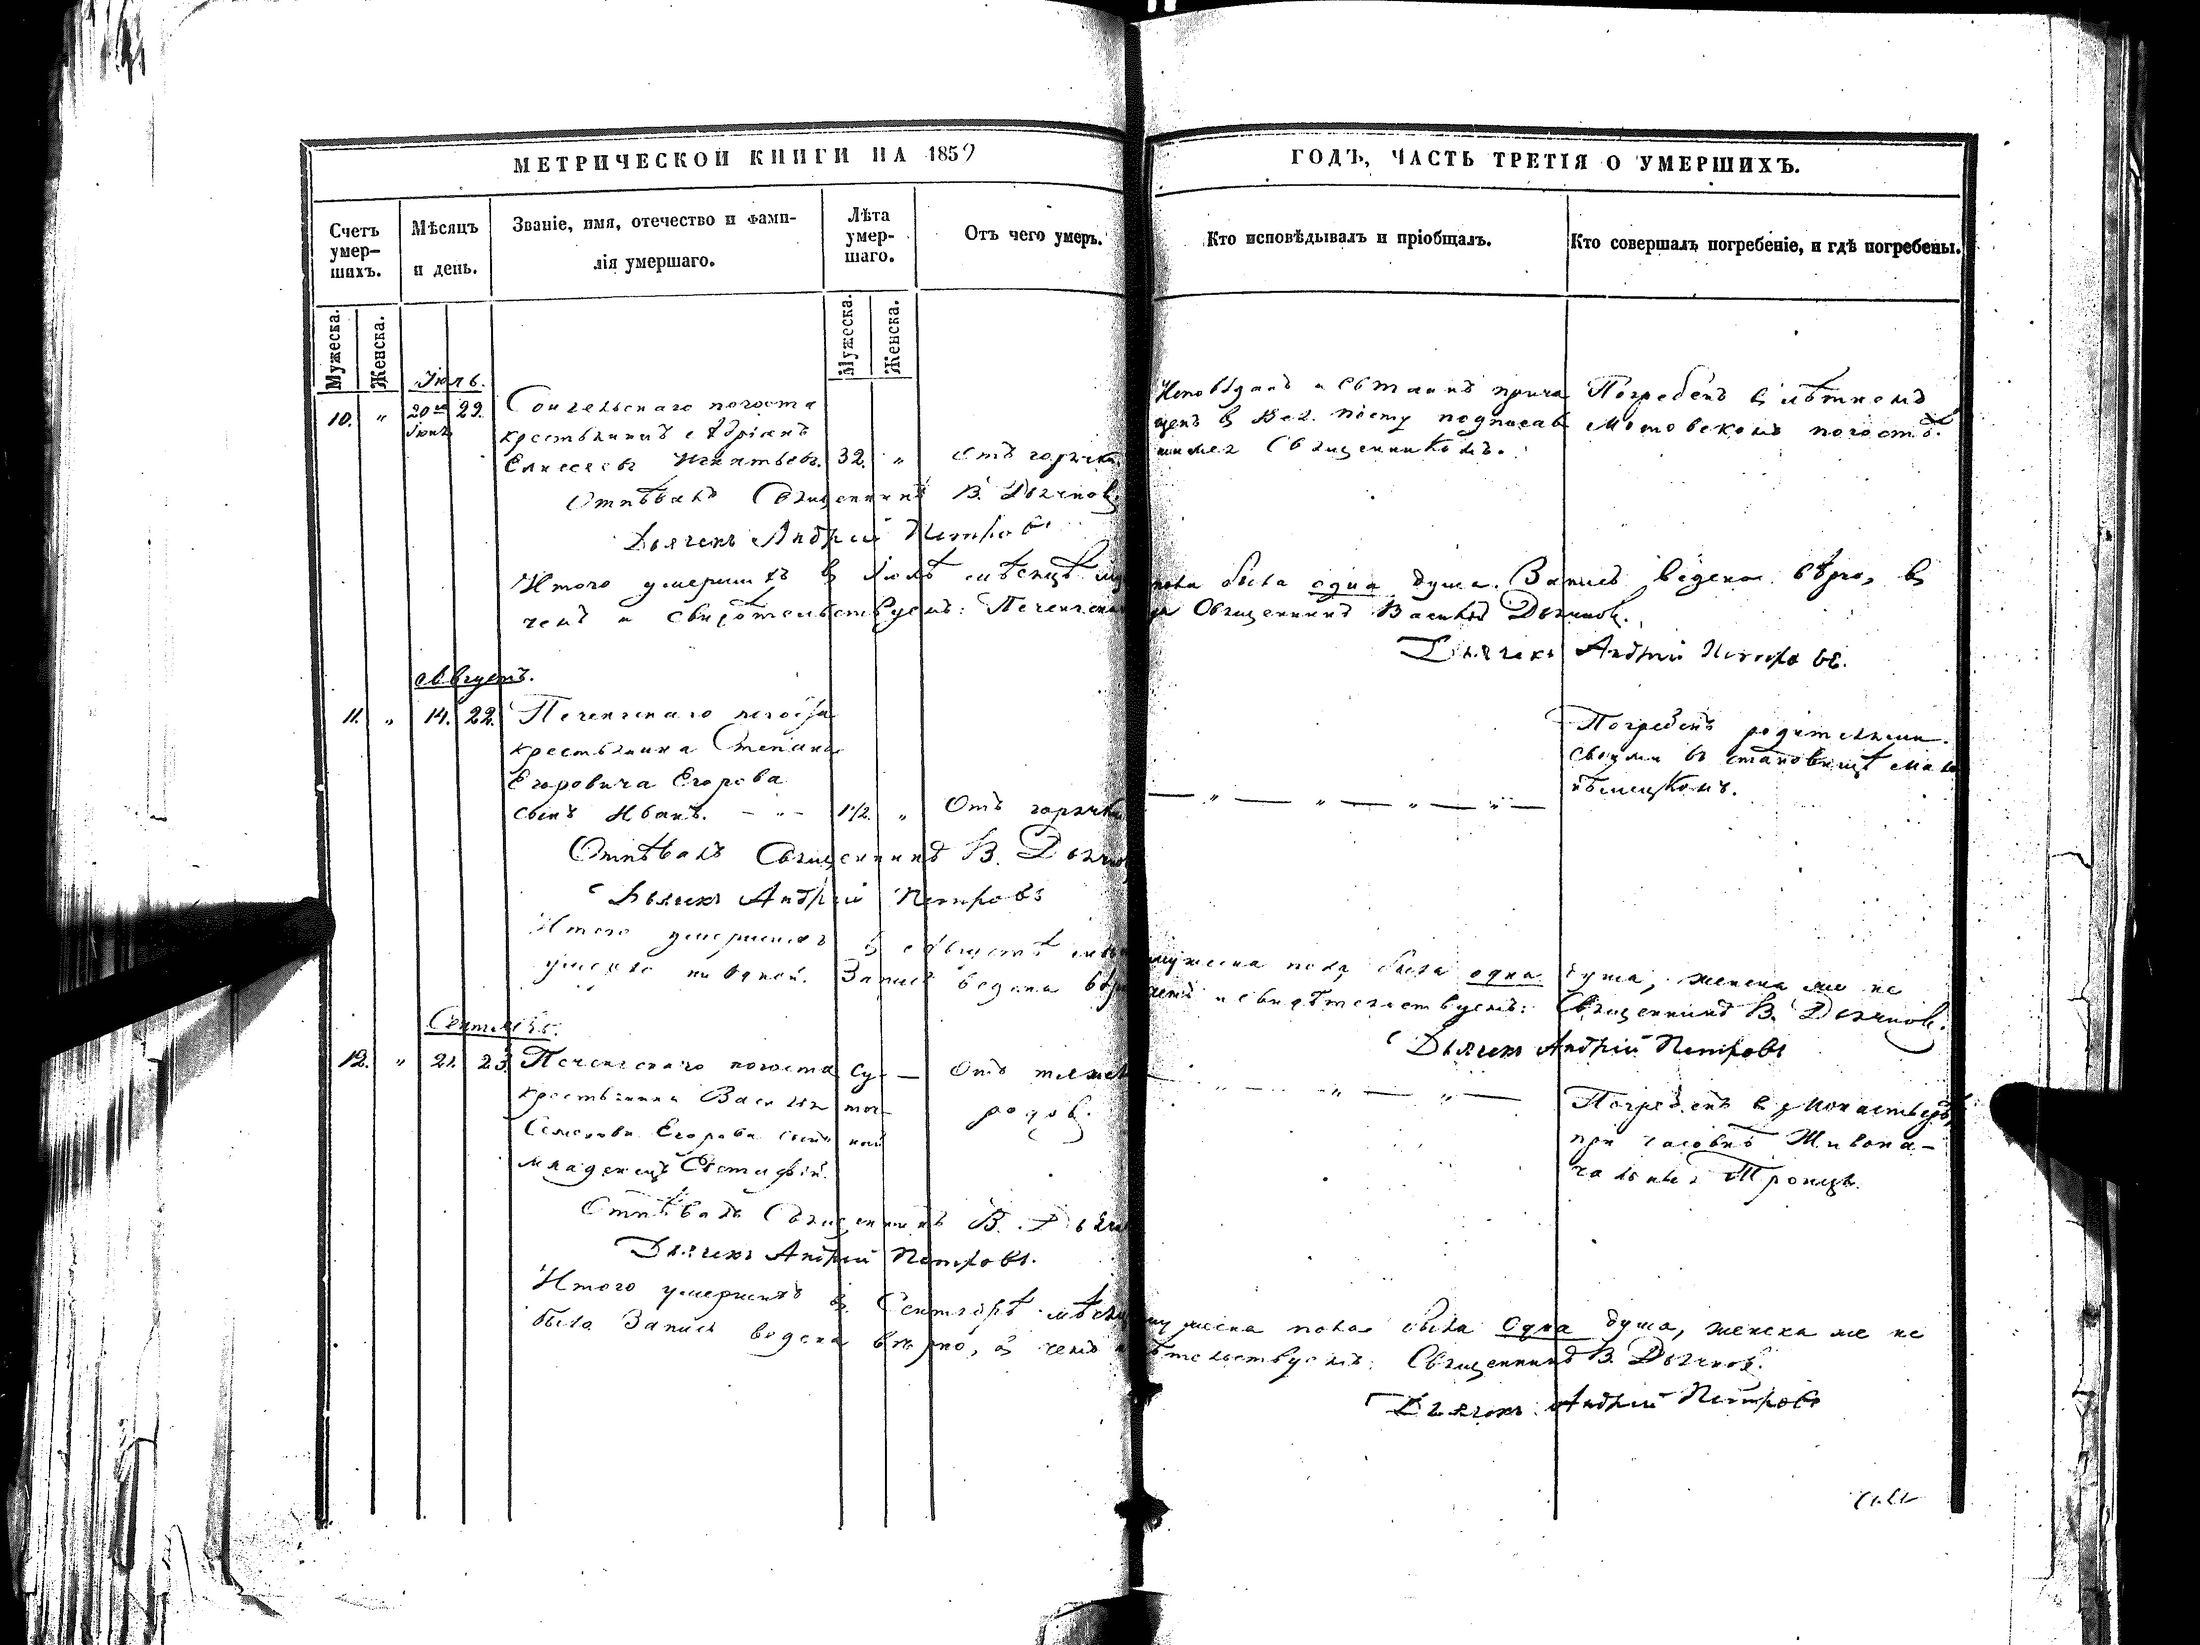 МЕТРИЧЕСКОЙ КНИГИ НА 1859
ГОДЪ, ЧАСТЬ ТРЕТІЯ О УМЕРШИХЪ.
Счетъ умер-
шихъ.
Мѣсяцъ
и день.
Званіе, имя, отечество и фами-
лія умершаго.
Лѣта
умер-
шаго.
Отъ чего умеръ.
Кто исповѣдывалъ и пріобщалъ.
Кто совершалъ погребеніе, и гдѣ погребены.
Мужеска.
Женска.
Мужеска.
Женска.
Іюль.
10. " 20го 29. Сонгельскаго погоста
Іюня
крестьянинъ Адріанъ
Елисеевъ Игнатьевъ. 32. " Отъ горячки
Исповѣданъ и Св. таинъ прича
щенъ въ Вел. посту подписав
шимся Священникомъ.
Погребенъ въ лѣтнемъ
Мотовскомъ погостѣ.
Отпѣвалъ Священникъ В. Дьячковъ
Дьячекъ Андрей Петровъ
Итого умершихъ въ Іюлѣ мѣсяцѣ
пола была одна душа. Запись ведена вѣрно, въ
чемъ и свидѣтельствуемъ: Печенгскій
Священникъ Василій Дьячковъ.
Дьячекъ Андрей Петровъ.
Августъ.
11. " 14. 22. Печенгскаго погоста
крестьянина Степана
Егоровича Егорова
сынъ Иванъ. 1 1/2. " Отъ горячки
Погребенъ родителями
своими въ становищѣ Мало
нѣмецкомъ.
Отпѣвалъ Священникъ В. Дьячков
Дьячекъ Андрей Петровъ
Итого умершихъ въ Августѣ
мужеска пола была одна душа, женска же не
ни одной. Запись ведена
чемъ и свидѣтельствуемъ: Священникъ В. Дьячковъ.
Дьячекъ Андрей Петровъ
Сентябрь.
12. " 21. 23. Печенгскаго погоста су- — Отъ
крестьянина Василія точ- родовъ.
Семенова Егорова сынъ ный
младенецъ Евстафій.
Погребенъ въ Монастырѣ,
при часовнѣ Живона-
чальныя Троицы.
Отпѣвалъ Священникъ В. Дьячк
Дьячекъ Андрей Петровъ.
Итого умершихъ въ Сентябрѣ мѣсяц
мужеска пола была одна душа, женска же не
было. Запись ведена вѣрно, въ чемъ
свидѣтельствуемъ: Священникъ В. Дьячковъ.
Дьячекъ Андрей Петровъ